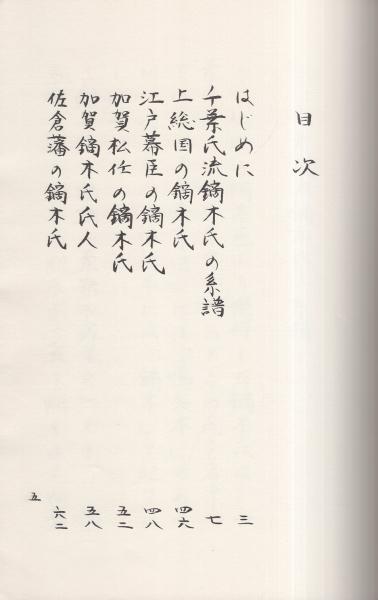 目次
はじめに 三
千葉氏流鏑木氏の系譜 七
上総国の鏑木氏 四六
江戸幕臣の鏑木氏 四八
加賀松任の鏑木氏 五二
加賀鏑木氏氏人 五八
佐倉藩の鏑木氏 六二
五